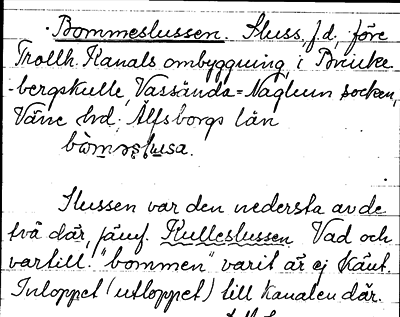 Bommeslussen. Sluss, f.d. före
Trollh. Kanals ombyggning, i Brinke
-bergskulle, Vassända-Naglum socken,
Väne hd. Älfsborgs län
Slussen var den nedersta av de
två där, jämf. Kulleslussen Vad och
vartill "bommen" varit är ej känt.
Inloppet (utloppet) till kanalen där.